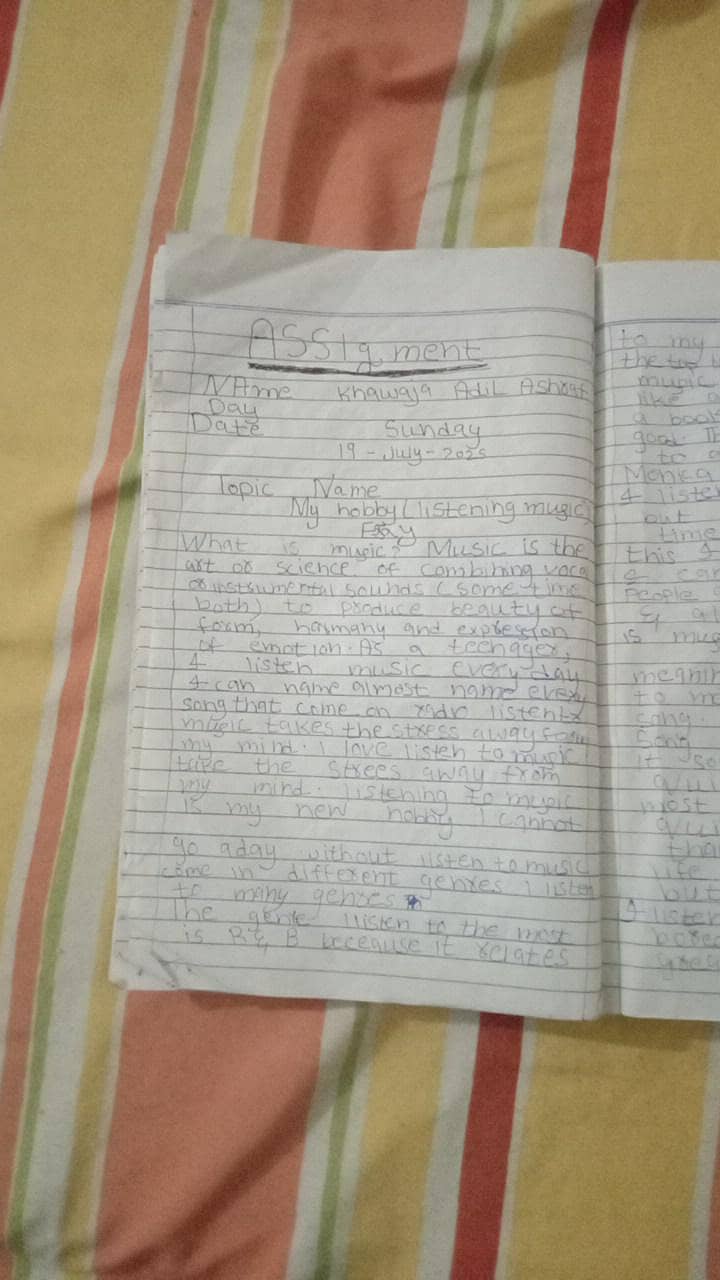 ASSIgment
NAme Khawaja Adil Ashraf
Day
Date Sunday
19 - July - 2025
Topic Name
My hobby (listening music)
Essay
What is music? Music is the
art or science of combining voca
or instrumental sounds (some time
both) to produce beauty of
form, harmony and expression
of emotion. As a teenager,
I listen music every day
I can name almost name every
song that come on radio listen
music takes the stress away from
my mind. I love listen to music
take the strees away from
my mind. listening to music
is my new hobby I cannot
go a day without listen to music
come in different genres I listen
to many genres
The genre I listen to the most
is R & B beceause it relates
to my
the top
music
like
a boo
good. I
to
Monica
I liste
but
time
this I
& can
People
& al
is mus
meanin
to m
song.
Song
it so
qui
most
qui
tha
life
but
I listen
bored
grea